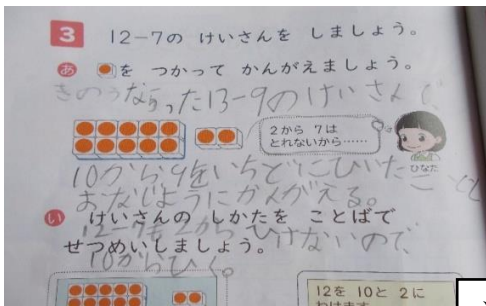 3 12-7の けいさんを しましょう。
あ を つかって かんがえましょう。
きのうならった13-9のけいさんで、
2から 7は
とれないから……
ひなた
10から9をいちどにひいた
こと
おなじようにかんがえる。
い けいさんの しかたを ことばで
12-7も2からひけないので、
せつめいしましょう。
10からひく。
12を 10と 2に
わけます